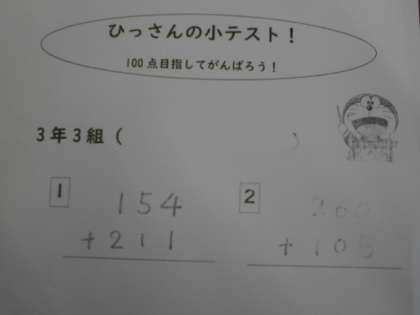 ひっさんの小テスト！
100点目指してがんばろう！
3年3組（　　　）
1
154
+211
2
260
+105